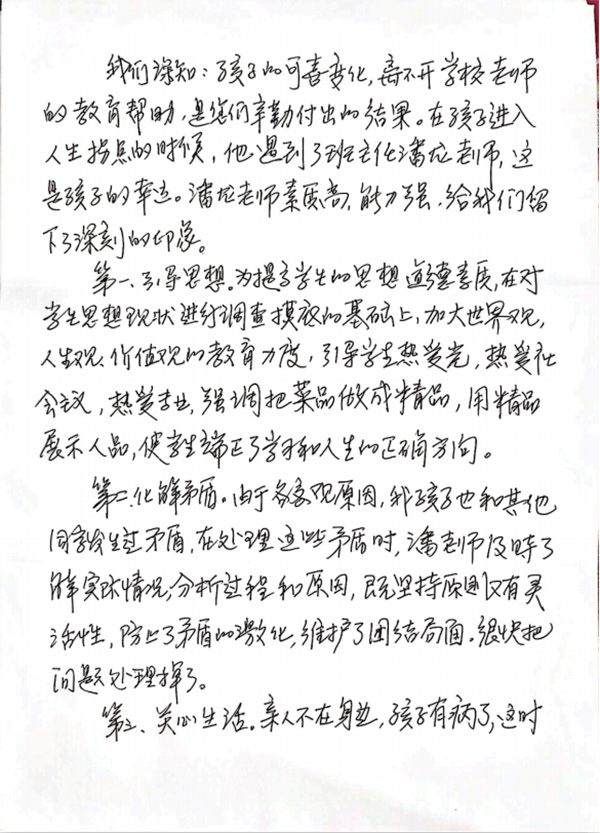 我们深知：孩子的可喜变化，离不开学校老师
的教育帮助，是您们辛勤付出的结果。在孩子进入
人生拐点的时候，他遇到了班主任潘龙老师，这
是孩子的幸运。潘龙老师素质高，能力强，给我们留
下了深刻的印象。
第一、引导思想。为提高学生的思想道德素质，在对
学生思想现状进行调查摸底的基础上，加大世界观，
人生观、价值观的教育力度，引导学生热爱党，热爱社
会主义，热爱专业，强调把菜品做成精品，用精品
展示人品，使学生端正了学习和人生的正确方向。
第二、化解矛盾。由于客观原因，我孩子也和其他
同学发生过矛盾，在处理这些矛盾时，潘老师及时了
解实际情况，分析过程和原因，既坚持原则又有灵
活性，防止了矛盾的激化，维护了团结局面。很快把
问题处理掉了。
第三、关心生活。亲人不在身边，孩子有病了，这时